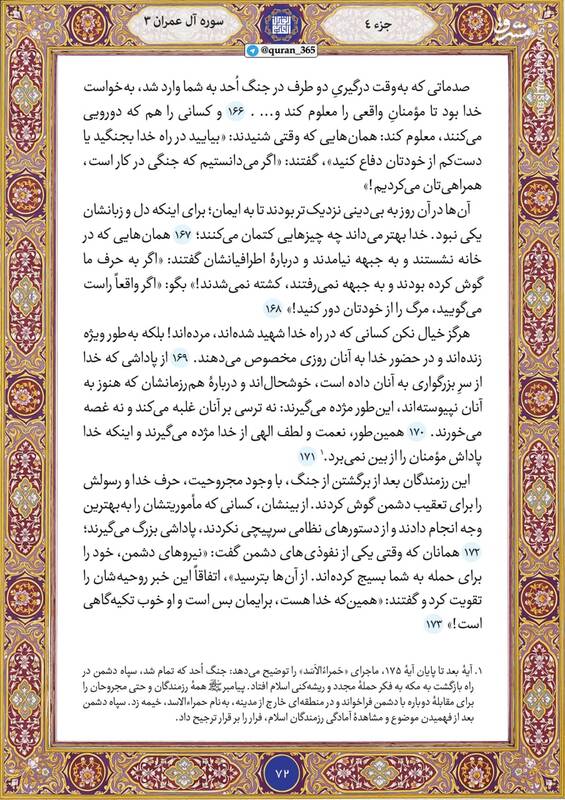 سوره آل عمران ۳
جزء ۴
@quran_365
مشرق
صدماتی که به‌وقت درگیریِ دو طرف در جنگ اُحد به شما وارد شد، به‌خواست
خدا بود تا مؤمنانِ واقعی را معلوم کند و... . ۱۶۶ و کسانی را هم که دورویی
می‌کنند، معلوم کند: همان‌هایی که وقتی شنیدند: «بیایید در راه خدا بجنگید یا
دست‌کم از خودتان دفاع کنید»، گفتند: «اگر می‌دانستیم که جنگی در کار است،
همراهی‌تان می‌کردیم!»
آن‌ها در آن روز به بی‌دینی نزدیک‌تر بودند تا به ایمان؛ برای اینکه دل و زبانشان
یکی نبود. خدا بهتر می‌داند چه چیزهایی کتمان می‌کنند؛ ۱۶۷ همان‌هایی که در
خانه نشستند و به جبهه نیامدند و دربارهٔ اطرافیانشان گفتند: «اگر به حرف ما
گوش کرده بودند و به جبهه نمی‌رفتند، کشته نمی‌شدند!» بگو: «اگر واقعاً راست
می‌گویید، مرگ را از خودتان دور کنید!» ۱۶۸
هرگز خیال نکن کسانی که در راه خدا شهید شده‌اند، مرده‌اند! بلکه به‌طور ویژه
زنده‌اند و در حضور خدا به آنان روزی مخصوص می‌دهند. ۱۶۹ از پاداشی که خدا
از سرِ بزرگواری به آنان داده است، خوشحال‌اند و دربارهٔ هم‌رزمانشان که هنوز به
آنان نپیوسته‌اند، این‌طور مژده می‌گیرند: نه ترسی بر آنان غلبه می‌کند و نه غصه
می‌خورند. ۱۷۰ همین‌طور، نعمت و لطف الهی از خدا مژده می‌گیرند و اینکه خدا
پاداش مؤمنان را از بین نمی‌برد.۱ ۱۷۱
این رزمندگان بعد از برگشتن از جنگ، با وجود مجروحیت، حرف خدا و رسولش
را برای تعقیب دشمن گوش کردند. از بینشان، کسانی که مأموریتشان را به‌بهترین
وجه انجام دادند و از دستورهای نظامی سرپیچی نکردند، پاداشی بزرگ می‌گیرند؛
۱۷۲ همانان که وقتی یکی از نفوذی‌های دشمن گفت: «نیروهای دشمن، خود را
برای حمله به شما بسیج کرده‌اند. از آن‌ها بترسید»، اتفاقاً این خبر روحیه‌شان را
تقویت کرد و گفتند: «همین‌که خدا هست، برایمان بس است و او خوب تکیه‌گاهی
است!» ۱۷۳
۱. آیهٔ بعد تا پایان آیهٔ ۱۷۵، ماجرای «حَمراءُالاَسَد» را توضیح می‌دهد: جنگ اُحد که تمام شد، سپاه دشمن در
راه بازگشت به مکه به فکر حملهٔ مجدد و ریشه‌کنی اسلام افتاد. پیامبر ﷺ همهٔ رزمندگان و حتی مجروحان را
برای مقابلهٔ دوباره با دشمن فراخواند و در منطقه‌ای خارج از مدینه، به‌نام حمراءالاسد، خیمه زد. سپاه دشمن
بعد از فهمیدن موضوع و مشاهدهٔ آمادگی رزمندگان اسلام، فرار را بر قرار ترجیح داد.
۷۲